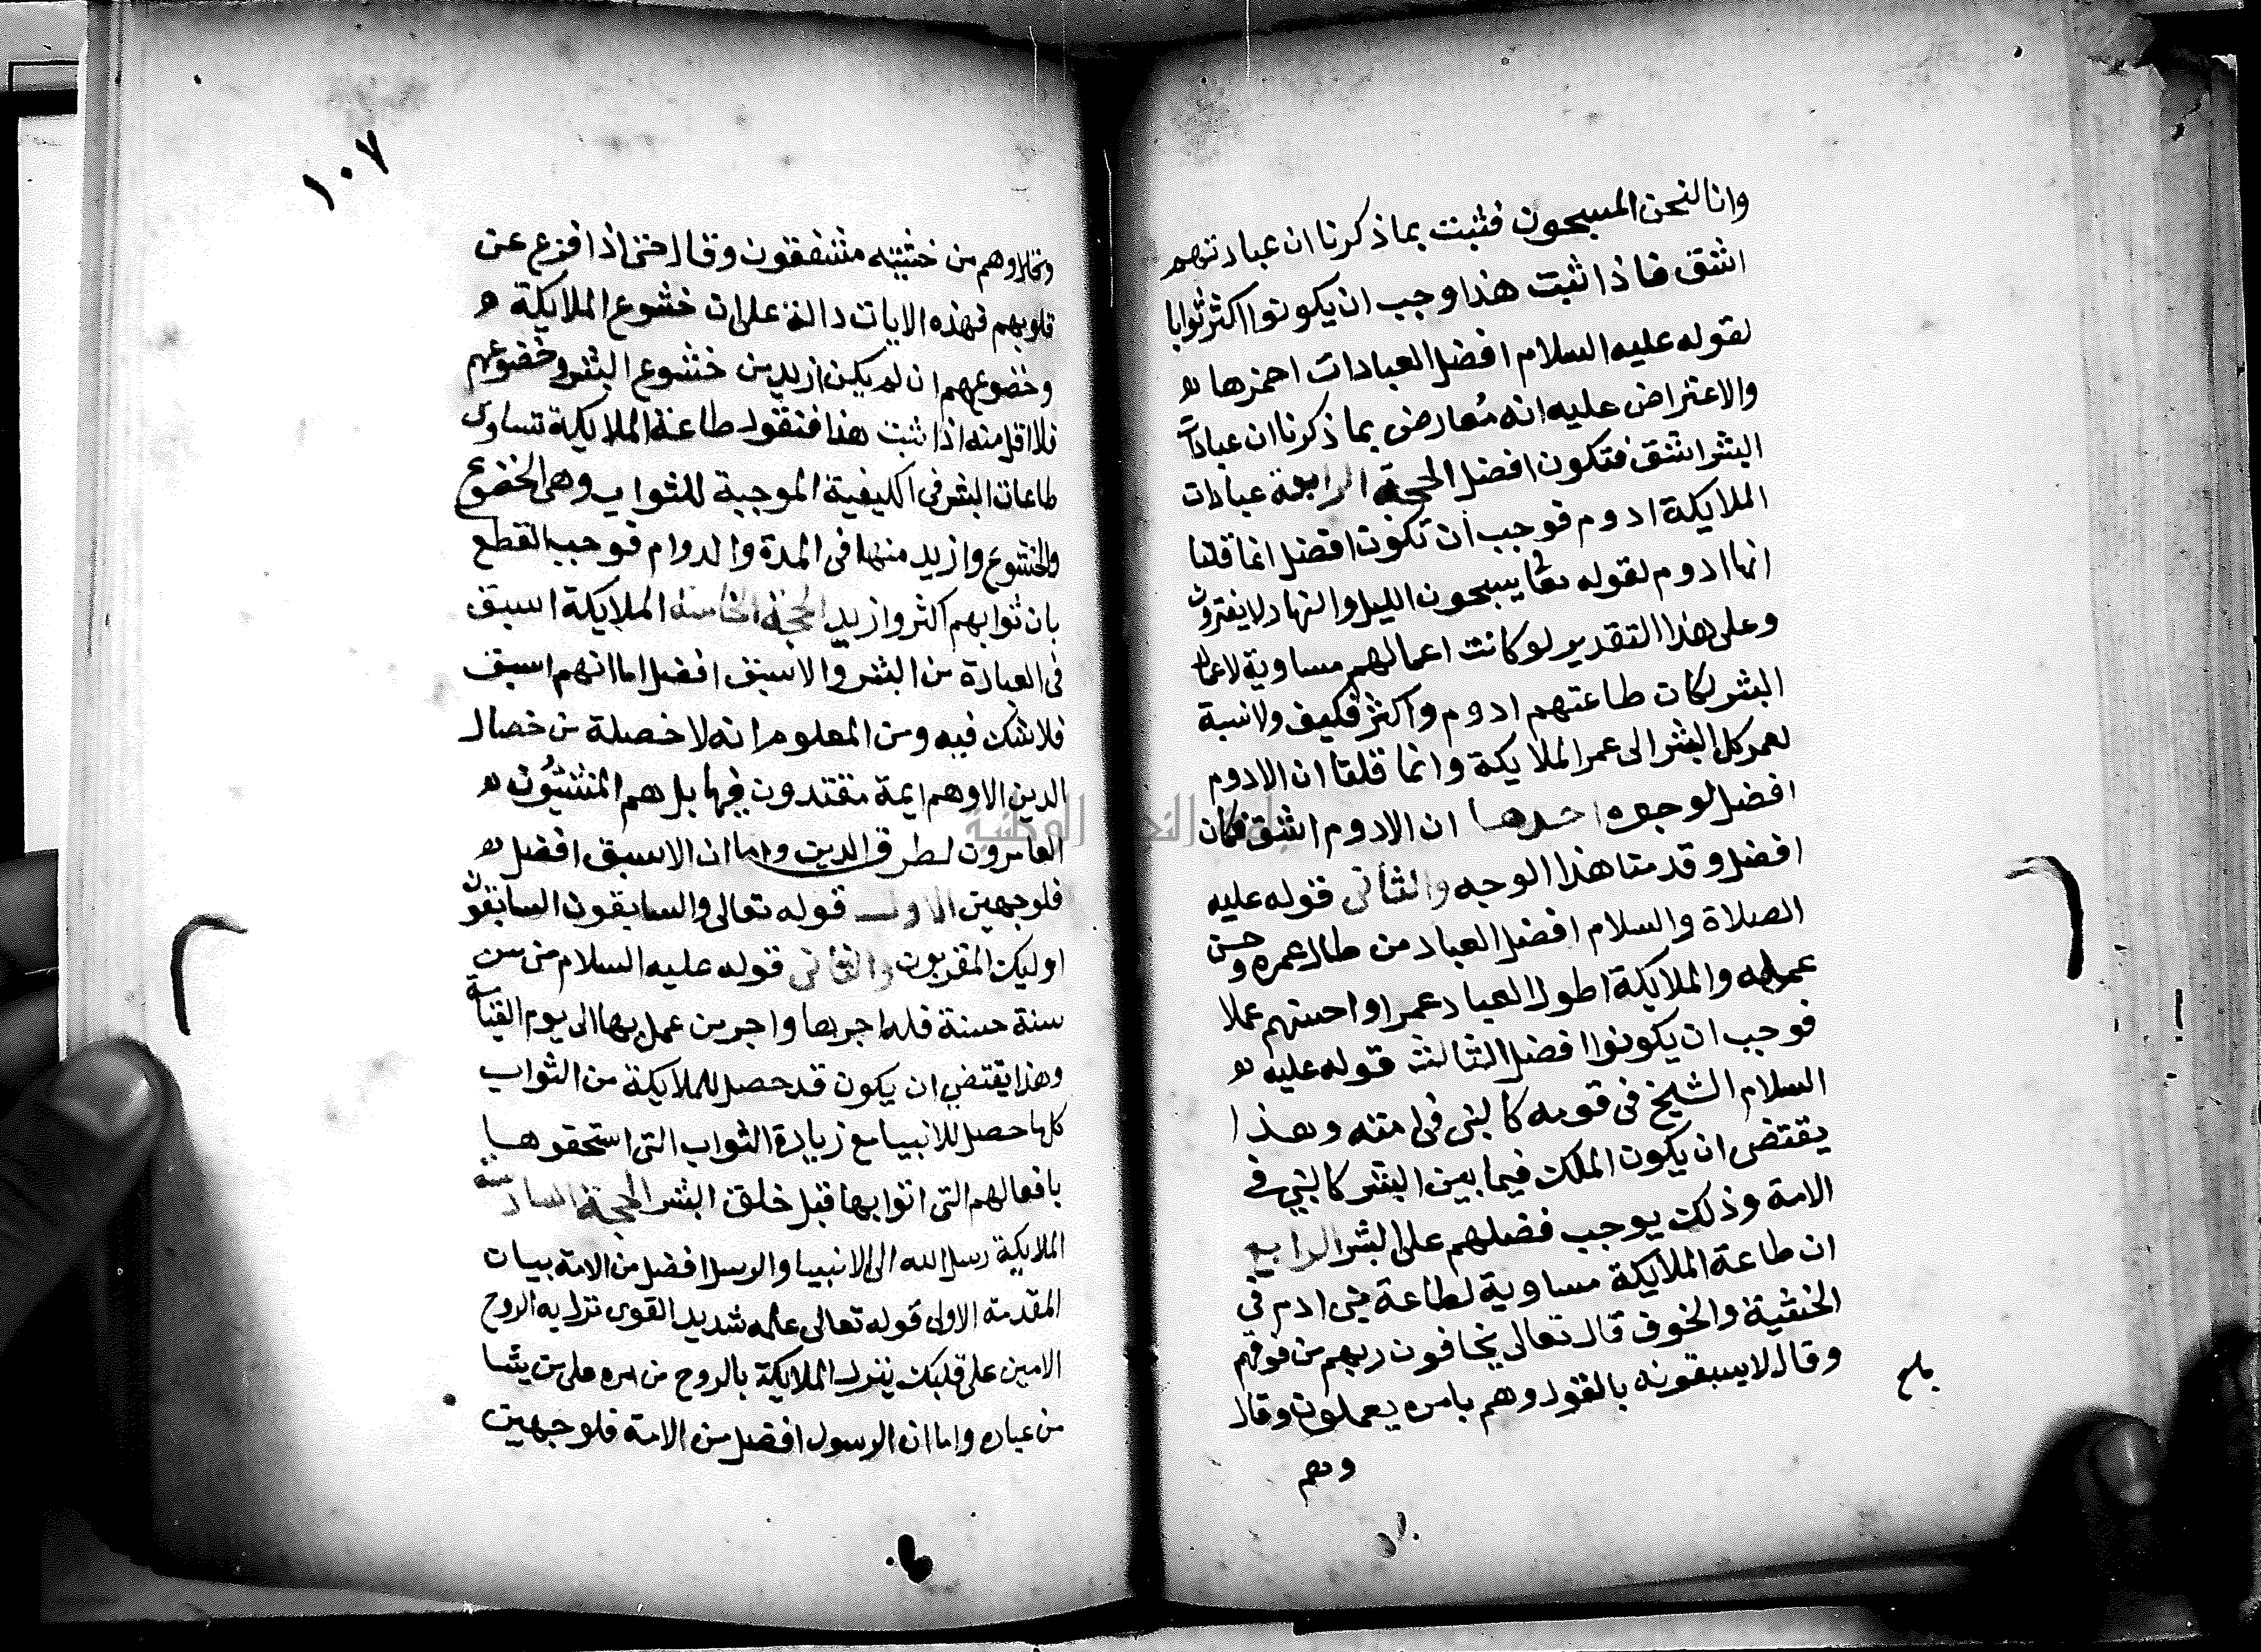 وانا لنحن المسبحون فثبت بما ذكرنا ان عبادتهم
اشق فاذا ثبت هذا وجب ان يكونوا اكثر ثوابا
لقوله عليه السلام افضل العبادات احمزها
والاعتراض عليه انه مُعارض بما ذكرنا ان عبادات
البشر اشق فتكون افضل الحجة الرابعة عبادات
الملايكة ادوم فوجب ان تكون افضل انما قلنا
انها ادوم لقوله تعا يسبحون الليل والنهار لا يفترون
وعلى هذا التقدير لو كانت اعمالهم مساوية لاعمال
البشر لكات طاعتهم ادوم واكثر فكيف ولا نسبة
لعمر كل البشر الى عمر الملايكة وانما قلنا ان الادوم
افضل لوجوه احدها ان الادوم اشق فكان
افضل وقد متنا هذا الوجه والثانى قوله عليه
الصلاة والسلام افضل العباد من طال عمره وحسن
عمله والملايكة اطول العباد عمرا واحسنهم عملا
فوجب ان يكونوا افضل الثالث قوله عليه
السلام الشيخ فى قومه كالنبى فى امته وهذا
يقتضى ان يكون الملك فيما بين البشر كالنبى فى
الامة وذلك يوجب فضلهم على البشر الرابع
ان طاعة الملايكة مساوية لطاعة بنى ادم فى
الخشية والخوف قال تعالى يخافون ربهم من فوقهم
وقال لا يسبقونه بالقول وهم بامره يعملون وقال
وهم
بلغ
١٠٧
وتعالى وهم من خشيته مشفقون وقال حتى اذا فزع عن
قلوبهم فهذه الايات دالة على ان خشوع الملايكة
وخضوعهم ان لم يكن ازيد من خشوع البشر وخضوعهم
فلا اقل منه اذا ثبت هذا فنقول طاعة الملايكة تساوى
طاعات البشر فى الكيفية الموجبة للثواب وهى الخضوع
والخشوع وازيد منها فى المدة والدوام فوجب القطع
بان ثوابهم اكثر وازيد الحجة الخامسة الملايكة اسبق
فى العبادة من البشر والاسبق افضل اما انهم اسبق
فلا شك فيه ومن المعلوم انه لا خصلة من خصال
الدين الا وهم ايمة مقتدون فيها بل هم المنشئون
العامرون لطرق الدين واما ان الاسبق افضل
فلوجهين الاول قوله تعالى والسابقون السابقون
اوليك المقربون والثانى قوله عليه السلام من سن
سنة حسنة فله اجرها واجر من عمل بها الى يوم القيامة
وهذا يقتضى ان يكون قد حصل للملايكة من الثواب
كلما حصل للانبيا مع زيادة الثواب التى استحقوها
بافعالهم التى اتوا بها قبل خلق البشر الحجة السادسة
الملايكة رسل الله الى الانبيا والرسل افضل من الامة بيان
المقدمة الاولى قوله تعالى علمه شديد القوى نزل به الروح
الامين على قلبك ينزل الملايكة بالروح من امره على من يشا
من عباده واما ان الرسول افضل من الامة فلوجهين